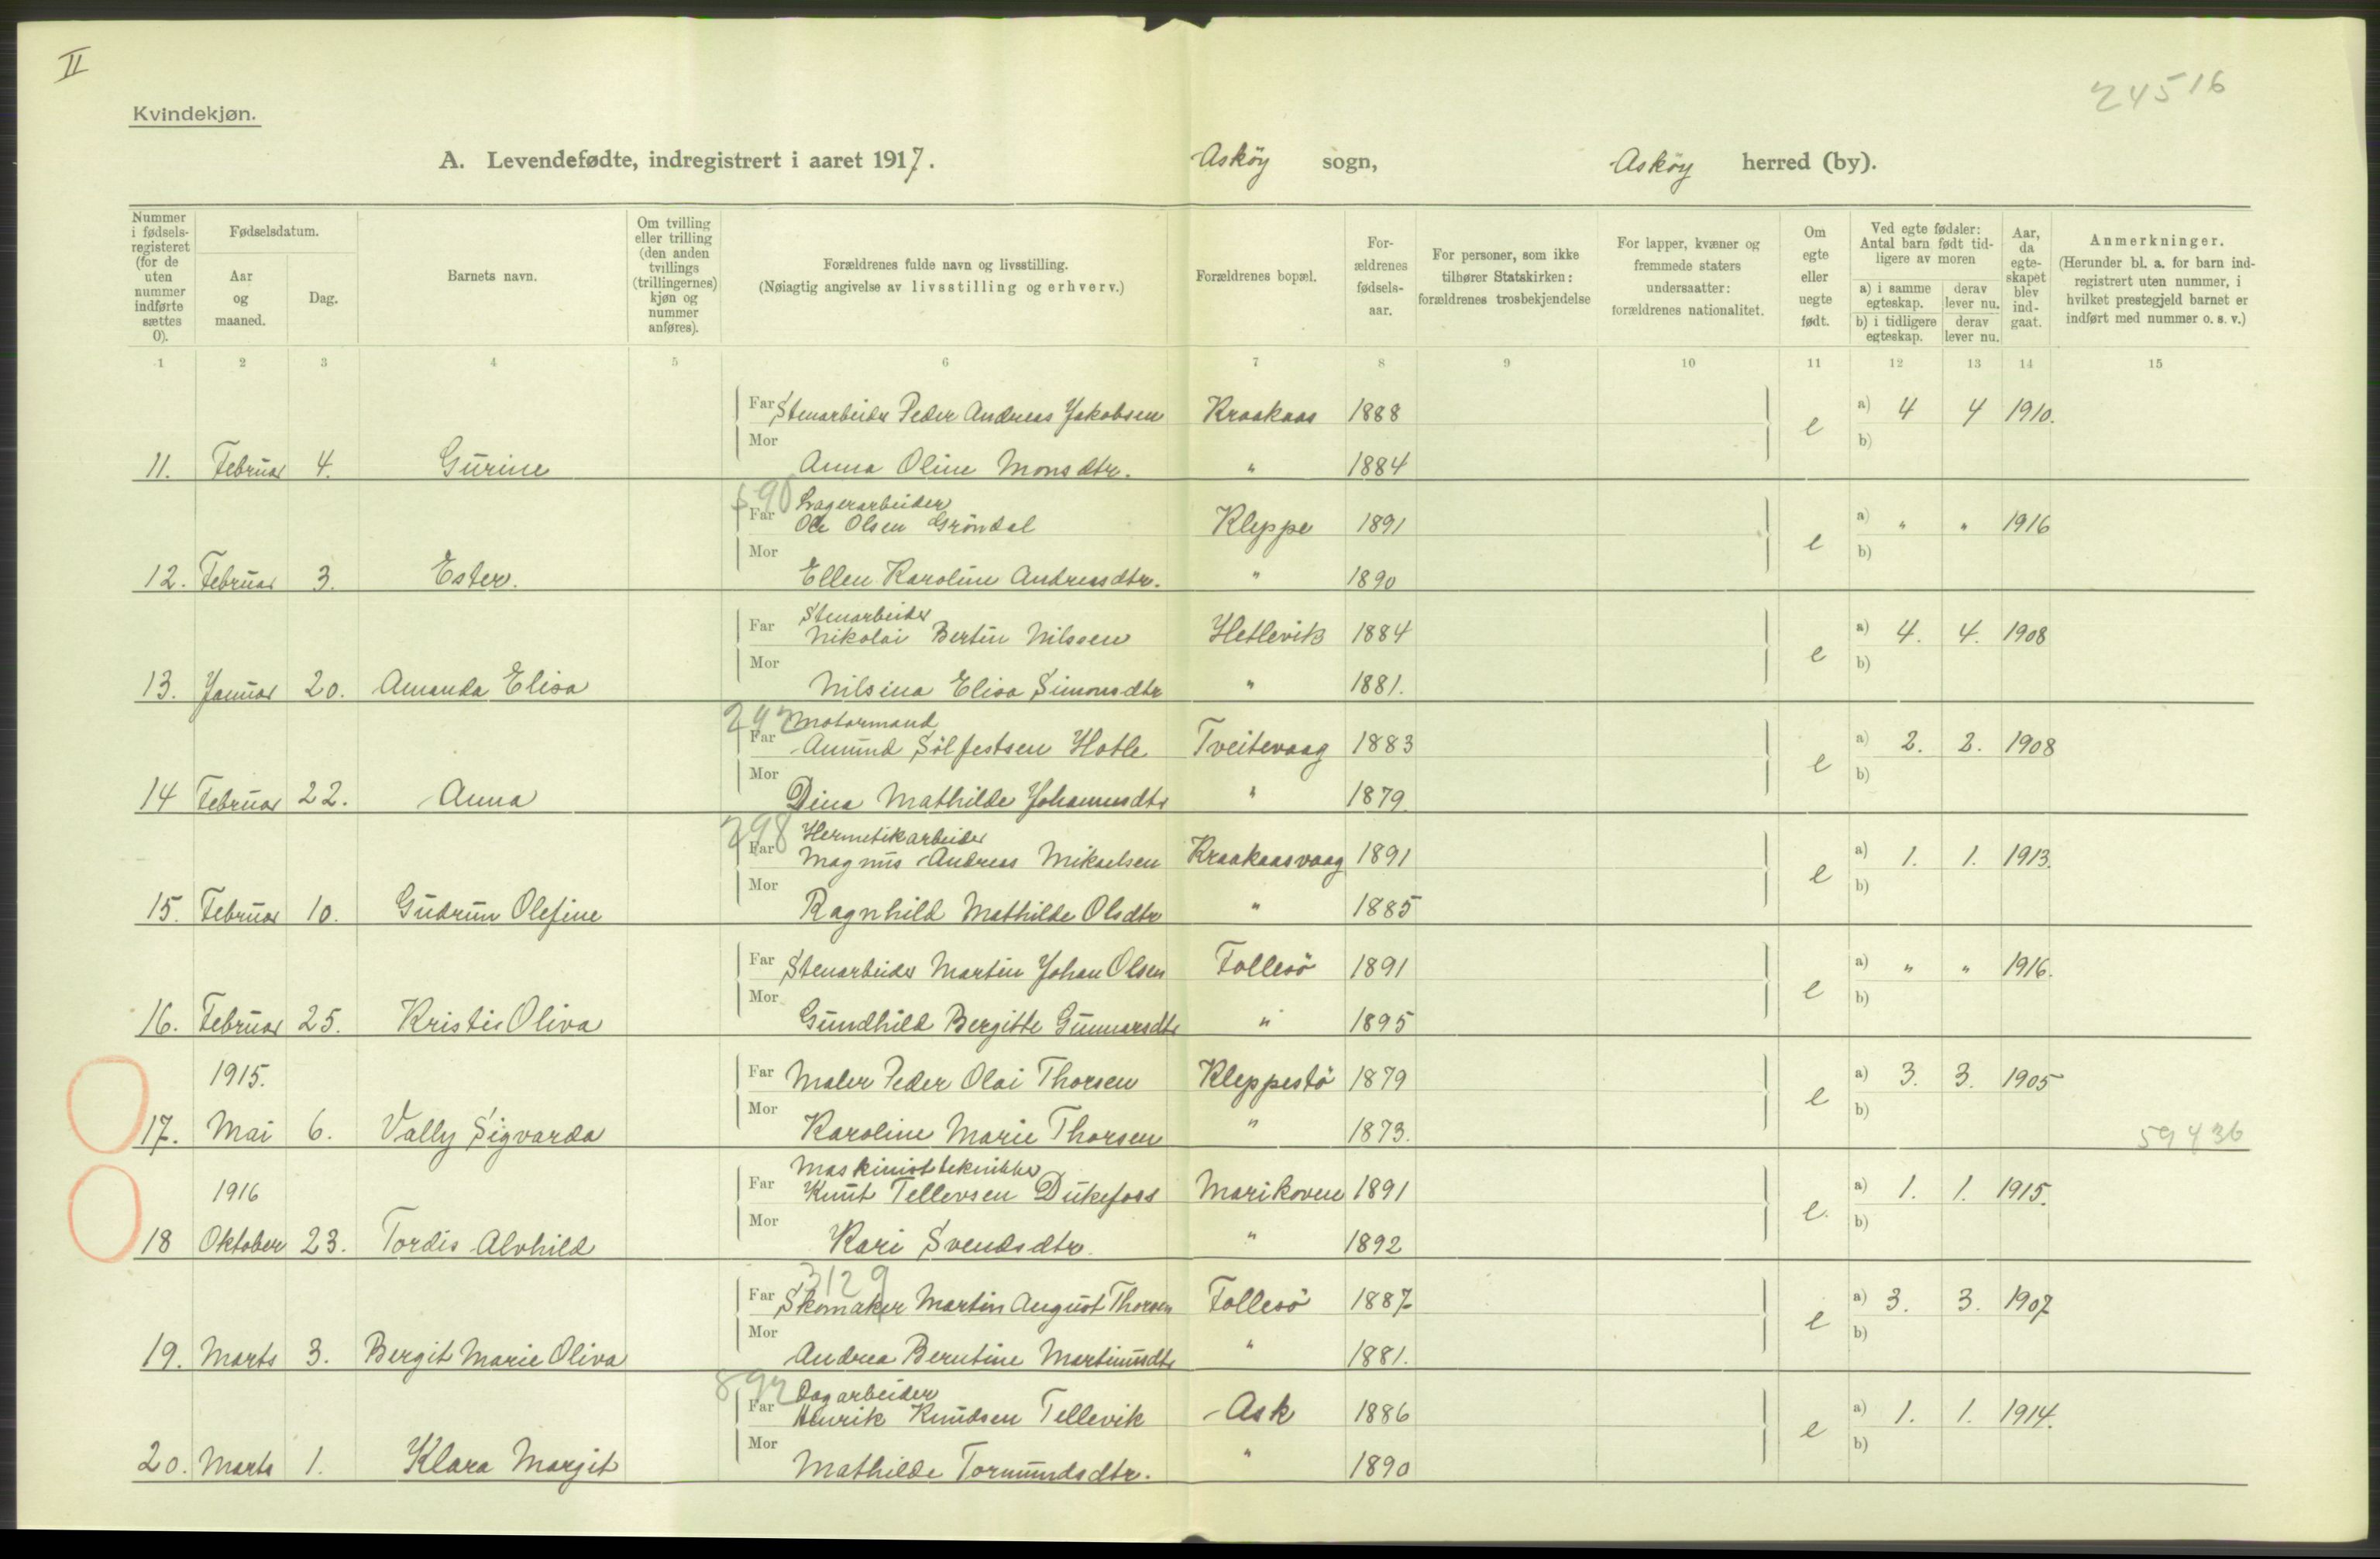 II
24516
Kvindekjøn.
A. Levendefødte, indregistrert i aaret 1917. Askøy sogn, Askøy herred (by).
Nummer i fødsels-registeret (for de uten nummer indførte sættes 0).
Fødselsdatum.
Aar og maaned.
Dag.
Barnets navn.
Om tvilling eller trilling (den anden tvillings (trillingernes) kjøn og nummer anføres).
Forældrenes fulde navn og livsstilling.
(Nøiagtig angivelse av livsstilling og erhverv.)
Forældrenes bopæl.
For-ældrenes fødsels-aar.
For personer, som ikke tilhører Statskirken: forældrenes trosbekjendelse
For lapper, kvæner og fremmede staters undersaatter: forældrenes nationalitet.
Om egte eller uegte født.
Ved egte fødsler: Antal barn født tid-ligere av moren
a) i samme egteskap.
derav lever nu.
b) i tidligere egteskap.
derav lever nu.
Aar, da egte-skapet blev ind-gaat.
Anmerkninger.
(Herunder bl. a. for barn ind-registrert uten nummer, i hvilket prestegjeld barnet er indført med nummer o. s. v.)
1 2 3 4 5 6 7 8 9 10 11 12 13 14 15
Far Stenarbeider Peder Andreas Jakobsen Kraakaas 1888 e a) 4 4 1910.
Mor b)
11. Februar 4. Gurine Anna Oline Monsdtr. " 1884
590 Lagerarbeider
Far Ole Olsen Grøndal Kleppe 1891 e a) " " 1916
Mor b)
12. Februar 3. Ester. Ellen Karoline Andreasdtr. " 1890
Stenarbeider
Far Nikolai Bertin Nilssen Hetlevik 1884 e a) 4. 4. 1908
Mor b)
13. Januar 20. Amanda Elisa Nilsina Elisa Simonsdtr " 1881.
Motormand
Far Amund Sølfestsen Hatle Tveitevaag 1883 e a) 2. 2. 1908
Mor b)
14 Februar 22. Anna Dina Mathilde Johannesdtr " 1879.
298 Hermetikarbeider
Far Magnus Andreas Mikaelsen Kraakaasvaag 1891 e a) 1. 1. 1913.
Mor b)
15. Februar 10. Gudrun Olefine Ragnhild Mathilde Olsdtr " 1885
Far Stenarbeider Martin Johan Olsen Follesö 1891 e a) " " 1916.
Mor b)
16. Februar 25. Kristie Oliva Gundhild Bergitte Gunnarsdtr " 1895
1915. Far Maler Peder Olai Thorsen Kleppestö 1879 e a) 3. 3. 1905
Mor b)
17. Mai 6. Vally Sigvarda Karoline Marie Thorsen " 1873. 59436
Maskinisttekniker
1916 Far Knut Tellevsen Dukefoss Marikoven 1891 e. a) 1. 1. 1915.
Mor b)
18 Oktober 23. Tordis Alvhild Kari Svendsdtr. " 1892
3129
Far Skomaker Martin August Thorsen Follesö 1887 e a) 3. 3. 1907
Mor b)
19. Marts 3. Bergit Marie Oliva Andrea Berntine Martinusdtr " 1881.
Dagarbeider
Far Henrik Knudsen Tellevik Ask 1886 e a) 1. 1. 1914.
Mor b)
20. Marts 1. Klara Margit Mathilde Tormundsdtr. " 1890